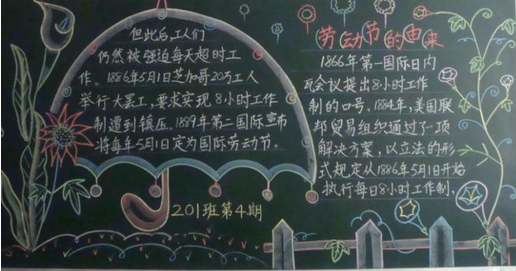 劳动节的由来
1866年第一国际日内
瓦会议提出8小时工作
制的口号,1884年,美国联
邦贸易组织通过了一项
解决方案,以立法的形
式规定从1886年5月1日开始
执行每日8小时工作制,
但此后,工人们
仍然被强迫每天超时工
作。1886年5月1日芝加哥20万工人
举行大罢工,要求实现8小时工作
制遭到镇压。1889年第二国际宣布
将每年5月1日定为国际劳动节。
201班第4期